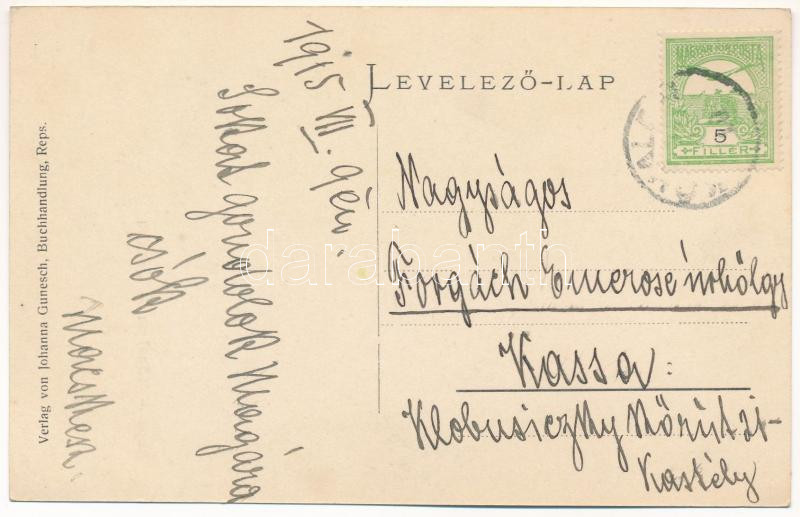 1915 VII. 9én.
Sokat gondolok Magára
csók
Verlag von Johanna Gunesch, Buchhandlung, Reps.
LEVELEZŐ-LAP
MAGYAR KIR. POSTA
5
FILLÉR
Nagyságos
Forgách Emerose úrhölgy
Kassa:
Klobusiczky Körúti-
Kastély
darabanth